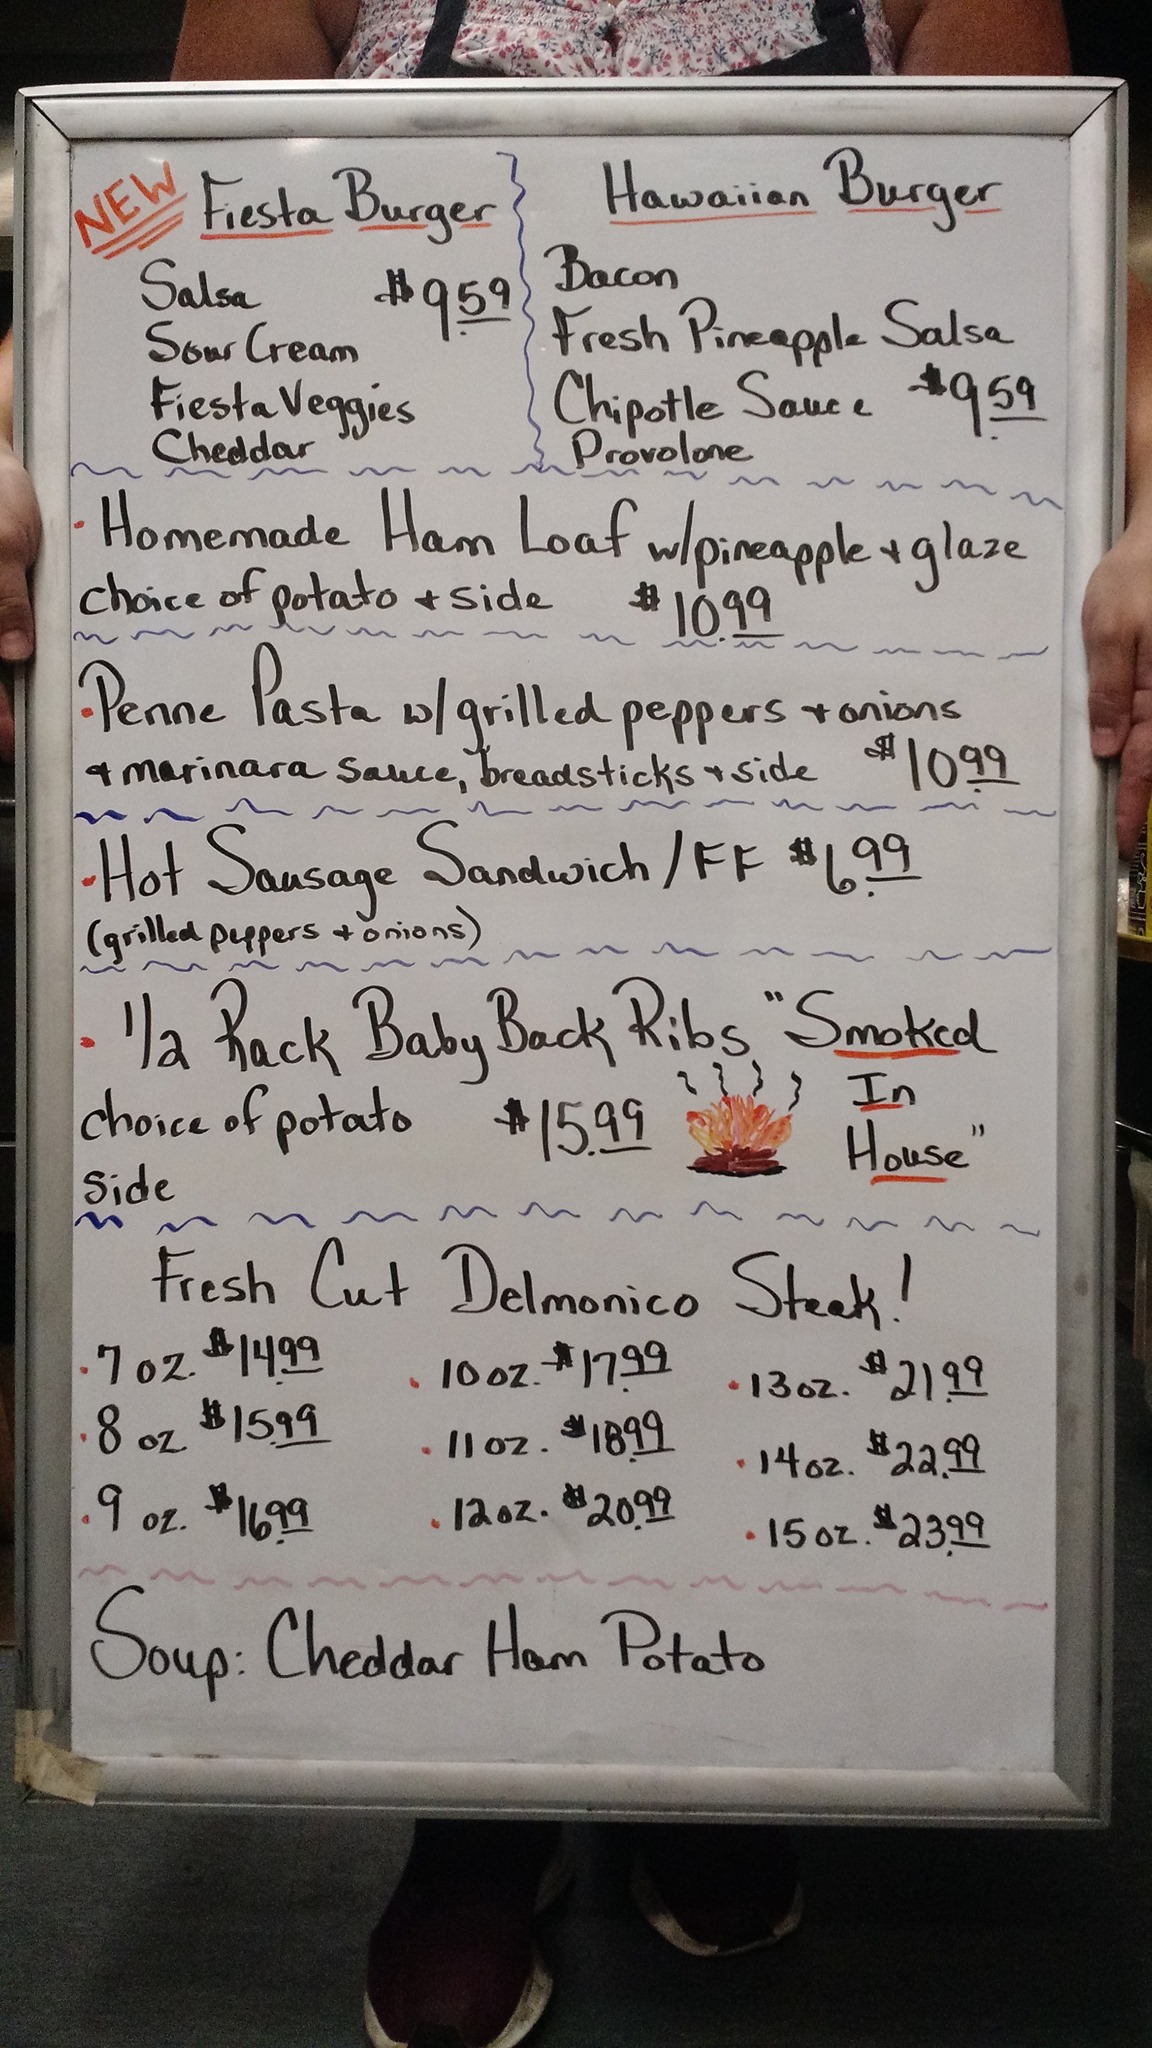 NEW Fiesta Burger
Salsa $9.59
Sour Cream
Fiesta Veggies
Cheddar
Hawaiian Burger
Bacon
Fresh Pineapple Salsa
Chipotle Sauce $9.59
Provolone
• Homemade Ham Loaf w/pineapple + glaze
choice of potato + side $10.99
• Penne Pasta w/grilled peppers + onions
+ marinara sauce, breadsticks + side $10.99
• Hot Sausage Sandwich /FF $6.99
(grilled peppers + onions)
• 1/2 Rack Baby Back Ribs "Smoked
In
choice of potato $15.99 House"
side
Fresh Cut Delmonico Steak!
• 7 oz. $14.99 • 10 oz. $17.99 • 13 oz. $21.99
• 8 oz $15.99 • 11 oz. $18.99 • 14 oz. $22.99
• 9 oz. $16.99 • 12 oz. $20.99 • 15 oz. $23.99
Soup: Cheddar Ham Potato